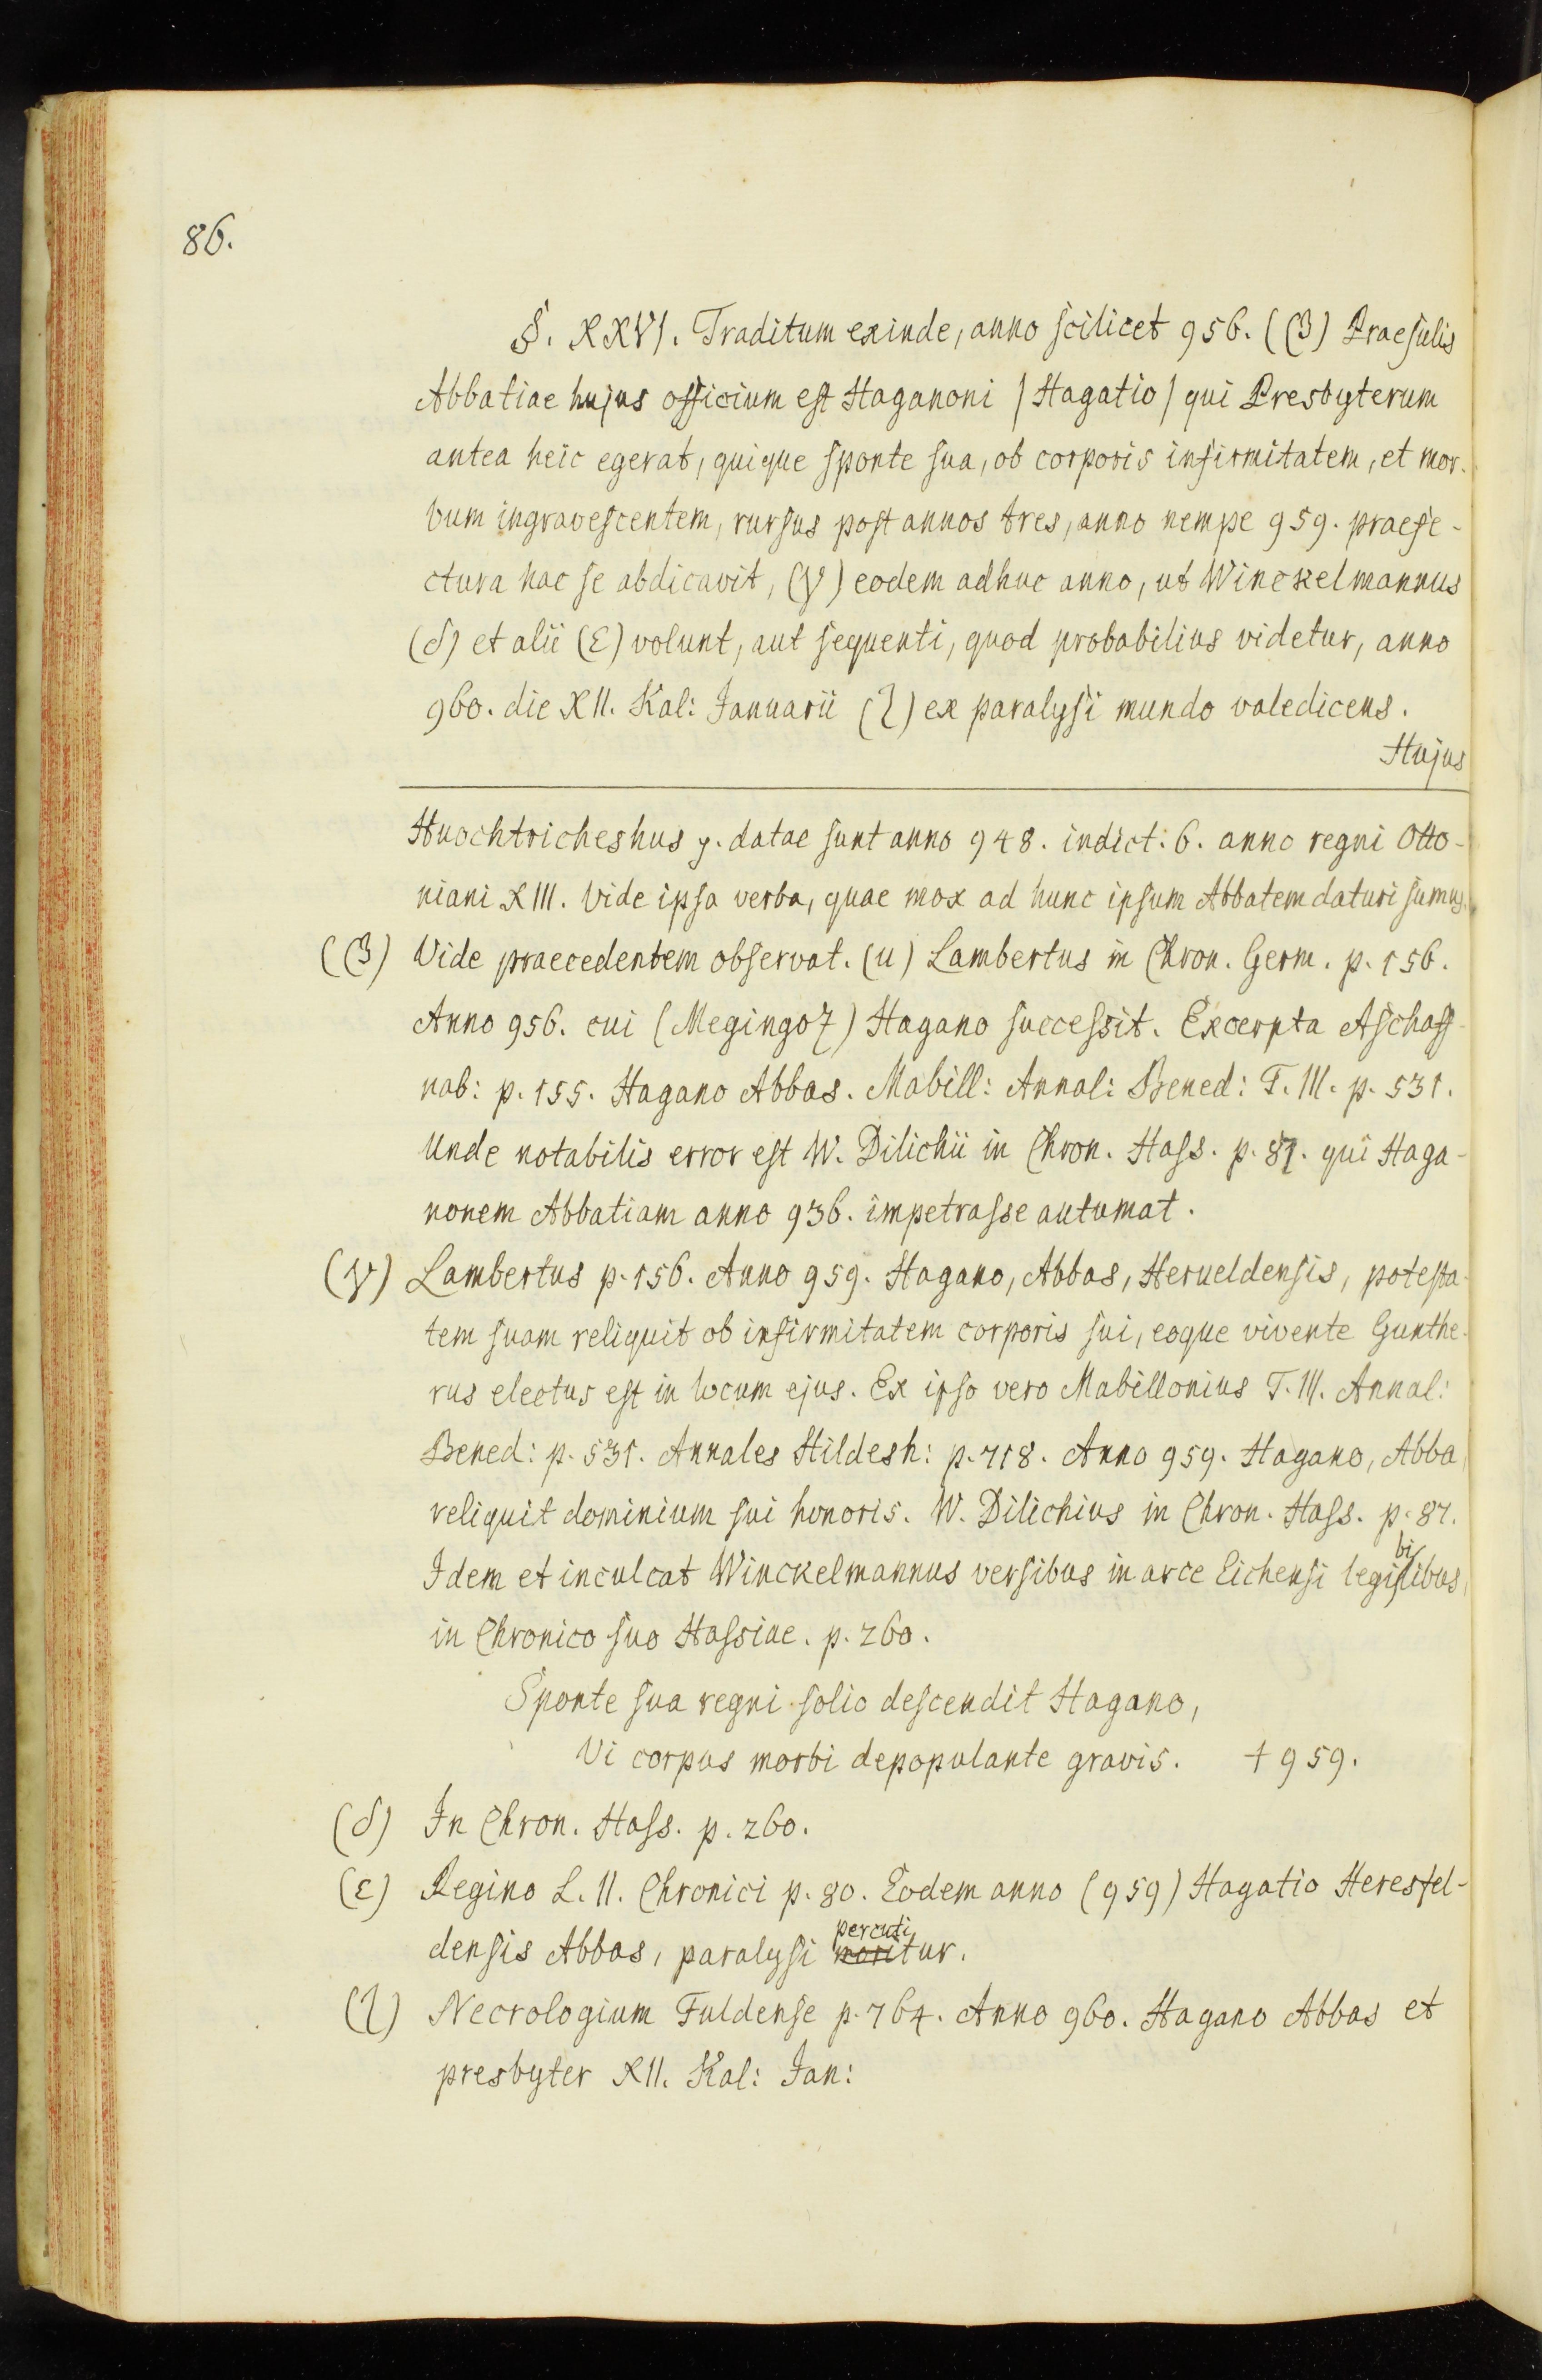 86.
§. XXVI. Traditum exinde, anno scilicet 956. (β) Praesulis
Abbatiae hujus officium est Haganoni / Hagatio / qui Presbyterum
antea heic egerat, quique sponte sua, ob corporis infirmitatem, et mor-
bum ingravescentem, rursus post annos tres, anno nempe 959. praefe-
ctura hac se abdicavit, (γ) eodem adhuc anno, ut Winckelmannus
(δ) et alii (ε) volunt, aut sequenti, quod probabilius videtur, anno
960. die XII. Kal: Januarii (ζ) ex paralysi mundo valedicens.
Hujus
Huochtricheshus p. datae sunt anno 948. indict: 6. anno regni Otto-
niani XIII. Vide ipsa verba, quae mox ad hunc ipsum Abbatem daturi sumus.
(β) Vide praecedentem observat. (u) Lambertus in Chron. Germ. p. 156.
Anno 956. cui (Megingoz) Hagano successit. Excerpta Aschaff-
nab: p. 155. Hagano Abbas. Mabill: Annal: Bened: T. III. p. 531.
Unde notabilis error est W. Dilichii in Chron. Hass. p. 87. qui Haga-
nonem Abbatiam anno 936. impetrasse autumat.
(γ) Lambertus p. 156. Anno 959. Hagano, Abbas, Herueldensis, potesta-
tem suam reliquit ob infirmitatem corporis sui, eoque vivente Gunthe-
rus electus est in locum ejus. Ex ipso vero Mabillonius T. III. Annal:
Bened: p. 531. Annales Hildesh: p. 718. Anno 959. Hagano, Abba,
reliquit dominium sui honoris. W. Dilichius in Chron. Hass. p. 87.
Idem et inculcat Winckelmannus versibus in arce Eichensi legibilibus,
in Chronico suo Hassiae. p. 260.
Sponte sua regni solio descendit Hagano,
Vi corpus morbi depopulante gravis. † 959.
(δ) In Chron. Hass. p. 260.
(ε) Regino L. II. Chronici p. 80. Eodem anno (959) Hagatio Heresfel-
densis Abbas, paralysi percutitur.
(ζ) Necrologium Fuldense p. 764. Anno 960. Hagano Abbas et
presbyter XII. Kal: Jan: